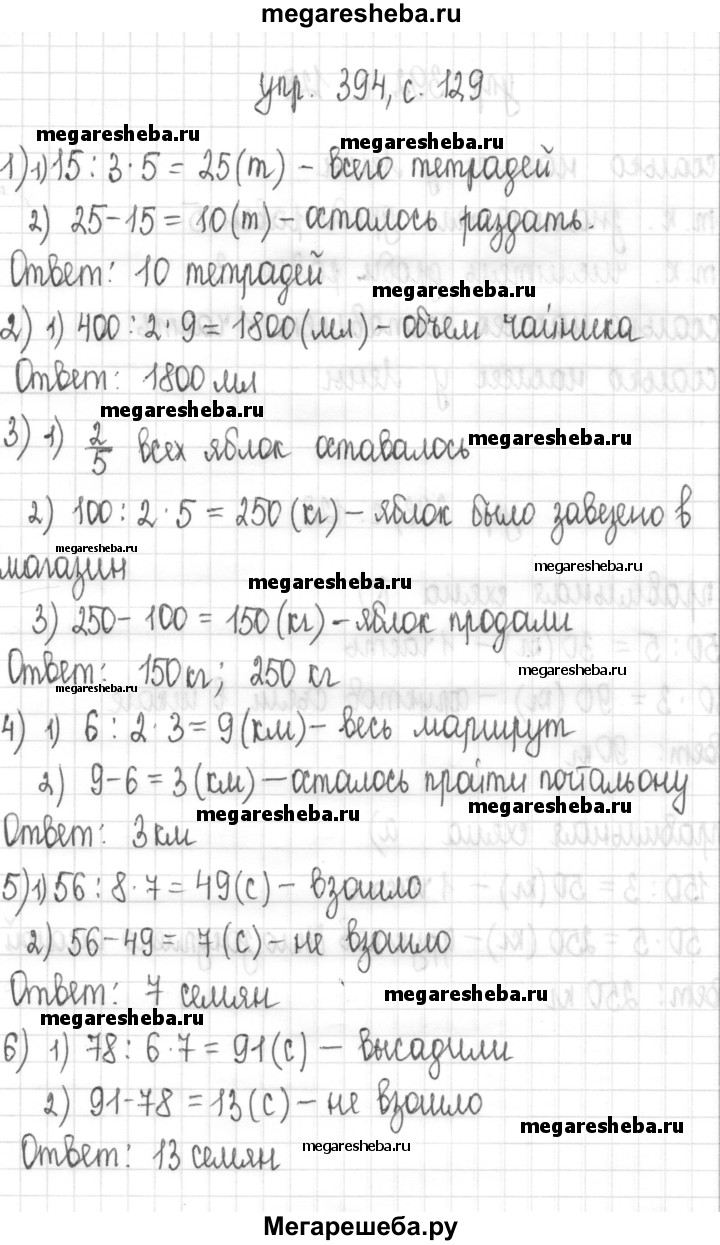 megaresheba.ru
упр. 394, с. 129
megaresheba.ru
megaresheba.ru
1) 1) 15 : 3 · 5 = 25 (т) - всего тетрадей
2) 25 - 15 = 10 (т) - осталось раздать.
Ответ: 10 тетрадей
megaresheba.ru
2) 1) 400 : 2 · 9 = 1800 (мл) - объем чайника
Ответ: 1800 мл
megaresheba.ru
3) 1) 2/5 всех яблок оставалось
megaresheba.ru
2) 100 : 2 · 5 = 250 (кг) - яблок было завезено в
megaresheba.ru
магазин
megaresheba.ru
megaresheba.ru
3) 250 - 100 = 150 (кг) - яблок продали
Ответ: 150 кг; 250 кг
megaresheba.ru
megaresheba.ru
4) 1) 6 : 2 · 3 = 9 (км) - весь маршрут
2) 9 - 6 = 3 (км) - осталось пройти почтальону
megaresheba.ru
megaresheba.ru
Ответ: 3 км
5) 1) 56 : 8 · 7 = 49 (с) - взошло
2) 56 - 49 = 7 (с) - не взошло
Ответ: 7 семян
megaresheba.ru
megaresheba.ru
6) 1) 78 : 6 · 7 = 91 (с) - высадили
2) 91 - 78 = 13 (с) - не взошло
megaresheba.ru
Ответ: 13 семян
megaresheba.ru
Мегарешеба.ру